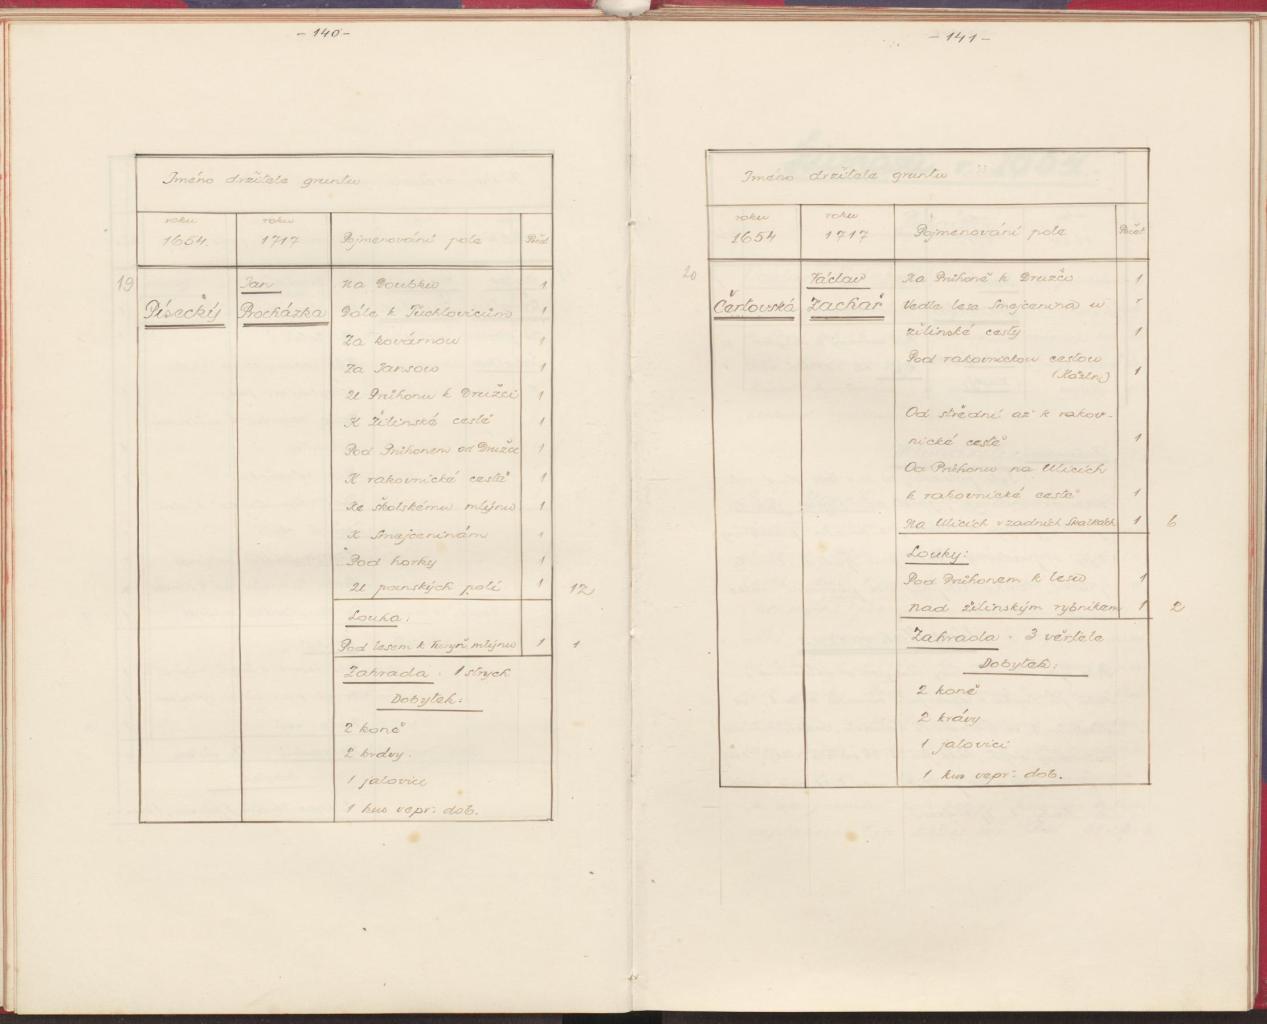 - 140 -
Jméno držitele gruntu
roku 1654. roku 1717 Pojmenování pole Počet
19 Písecký Jan Procházka Na Doubku 1
Dále k Tuchlovicům 1
Za kovárnou 1
Za Jansou 1
U Průhonu k Družci 1
K Žilinské cestě 1
Pod Průhonem od Družce 1
K rakovnické cestě 1
Ke školskému mlýnu 1
K Smejceninám 1
Pod horky 1
U panských polí 1 12
Louka:
Pod lesem k mlýnu 1 1
Zahrada . 1 strych
Dobytek:
2 koně
2 krávy.
1 jalovici
1 kus vepř. dob.
- 141 -
Jméno držitele gruntu
roku 1654 roku 1717 Pojmenování pole Počet
20 Čertovská Václav Zachař Na Průhoně k Družci 1
Vedle lesa Smejcenina u
žilinské cesty 1
Pod rakovnickou cestou
1
Od střední až k rakov-
nické cestě 1
Od Průhonu na Ulicích
k rakovnické cestě 1
Na Ulicích v zadních Skalkách 1 6
Louky:
Pod Průhonem k lesu 1
nad žilinským rybníkem 1 2
Zahrada . 3 věrtele
Dobytek:
2 koně
2 krávy
1 jalovici
1 kus vepř. dob.